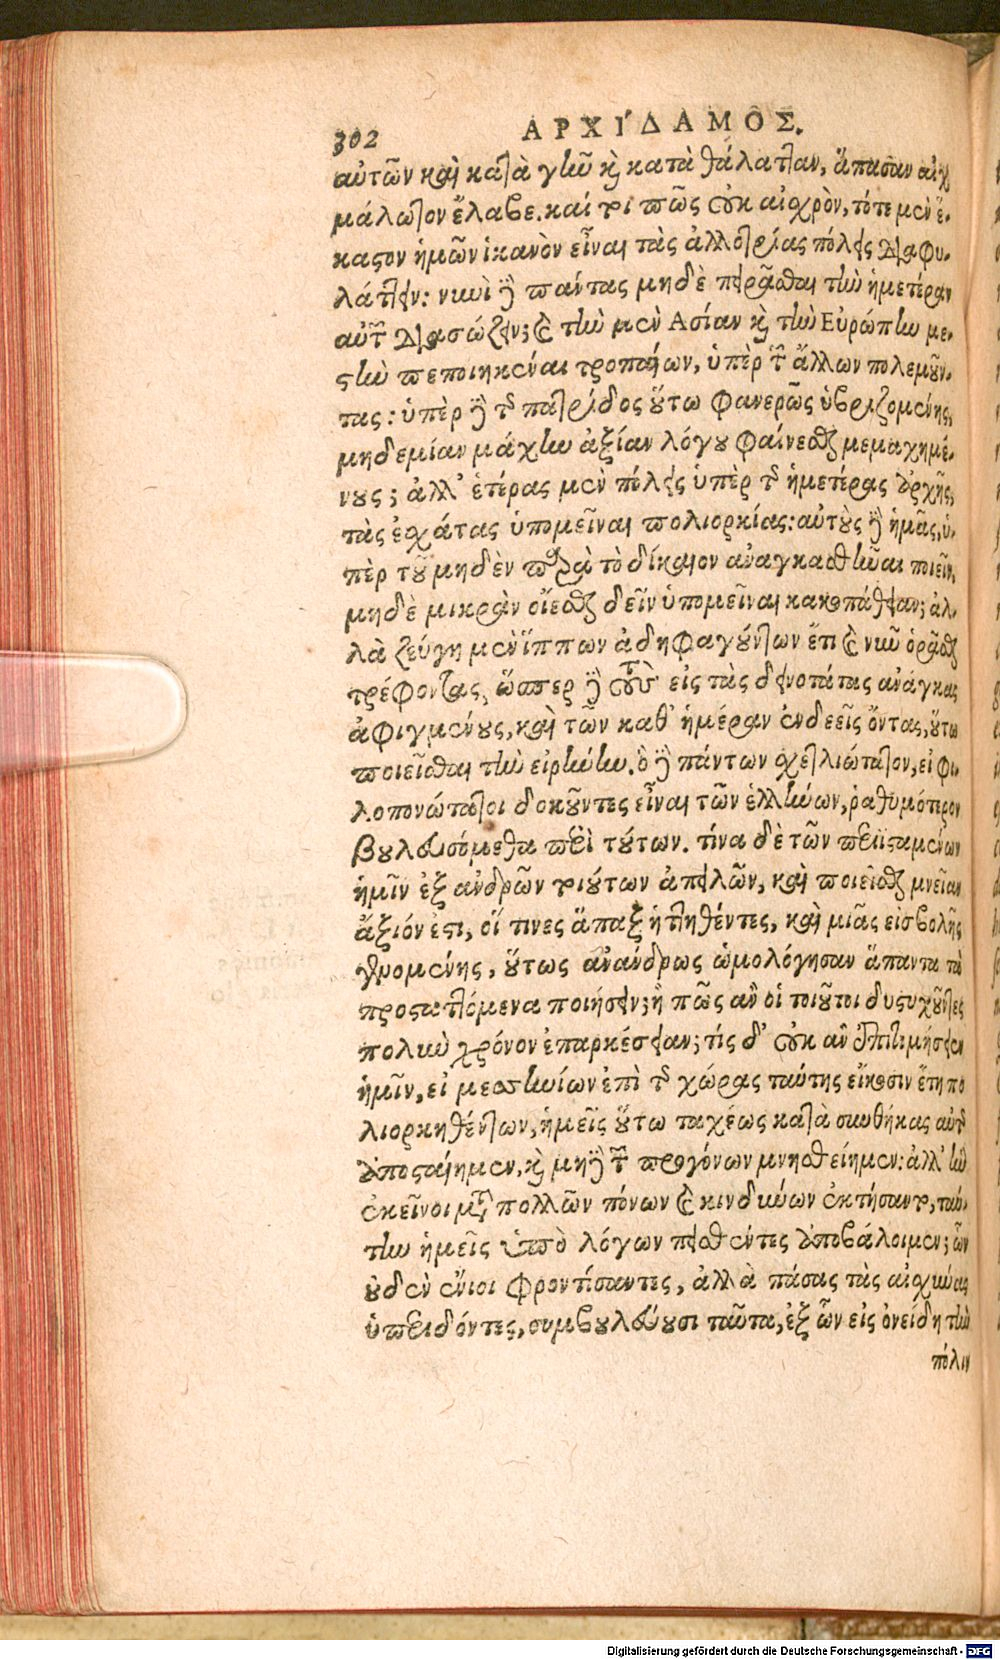 302 ΑΡΧΙ´ΔΑΜΟΣ.
αὐτῶν καὶ κατὰ γῆν καὶ κατὰ θάλατταν, ἅπασαν αἰχ
μάλωτον ἔλαβε. καί τοι πῶς οὐκ αἰσχρὸν, τότε μὲν ἕ-
καστον ἡμῶν ἱκανὸν εἶναι τὰς ἀλλοτρίας πόλεις διαφυ-
λάττειν: νυνὶ δὲ πάντας μηδὲ πειρᾶσθαι τὴν ἡμετέραν
αὐτῶν διασώζειν; καὶ τὴν μὲν Ασίαν καὶ τὴν Εὐρώπην με-
στὴν πεποιηκέναι τροπαίων, ὑπὲρ τῶν ἄλλων πολεμοῦν-
τας: ὑπὲρ δὲ τῆς πατρίδος οὕτω φανερῶς ὑβριζομένης,
μηδεμίαν μάχην ἀξίαν λόγου φαίνεσθαι μεμαχημέ-
νους; ἀλλ' ἑτέρας μὲν πόλεις ὑπὲρ τῆς ἡμετέρας ἀρχῆς,
τὰς ἐσχάτας ὑπομεῖναι πολιορκίας: αὐτοὺς δὲ ἡμᾶς, ὑ-
πὲρ τοῦ μηδὲν παρὰ τὸ δίκαιον ἀναγκασθῆναι ποιεῖν,
μηδὲ μικρὰν οἴεσθαι δεῖν ὑπομεῖναι κακοπάθειαν; ἀλ-
λὰ ζεύγη μὲν ἵππων ἀδηφαγούντων ἔτι καὶ νῦν ὁρᾶσθαι
τρέφοντας, ὥσπερ δὲ τοὺς εἰς τὰς δεινοτάτας ἀνάγκας
ἀφιγμένους, καὶ τῶν καθ' ἡμέραν ἐνδεεῖς ὄντας, οὕτω
ποιεῖσθαι τὴν εἰρήνην. ὃ δὲ πάντων σχετλιώτατον, εἰ φι-
λοπονώτατοι δοκοῦντες εἶναι τῶν ἑλλήνων, ῥαθυμότερον
βουλευσόμεθα περὶ τούτων. τίνα δὲ τῶν
ἡμῖν ἐξ ἀνδρῶν τοιούτων ἀπειλῶν, καὶ ποιεῖσθαι μνείαν
ἄξιόν ἐστι, οἵ τινες ἅπαξ ἡττηθέντες, καὶ μιᾶς εἰσβολῆς
γενομένης, οὕτως ἀνάνδρως ὡμολόγησαν ἅπαντα τὰ
προσταττόμενα ποιήσειν; ἢ πῶς ἂν οἱ τοιοῦτοι δυστυχοῦντες
πολὺν χρόνον ἐπαρκέσειαν; τίς δ' οὐκ ἂν ἐπιτιμήσειεν
ἡμῖν, εἰ μεσσηνίων ἐπὶ τῆς χώρας ταύτης εἴκοσιν ἔτη πο
λιορκηθέντων, ἡμεῖς οὕτω ταχέως κατὰ συνθήκας αὐτῆς
ἀποσταίημεν, καὶ μὴ δὲ τῶν προγόνων μνησθείημεν: ἀλλ' ἣν
ἐκεῖνοι μετὰ πολλῶν πόνων καὶ κινδύνων ἐκτήσαντο, ταύ-
την ἡμεῖς ὑπὸ λόγων πεισθέντες ἀποβάλοιμεν; ὧν
οὐδὲν ἔνιοι φροντίσαντες, ἀλλὰ πάσας τὰς αἰσχύνας
ὑπεριδόντες, συμβουλεύουσι ταῦτα, ἐξ ὧν εἰς ὀνείδη τὴν
πόλιν
Digitalisierung gefördert durch die Deutsche Forschungsgemeinschaft - DFG